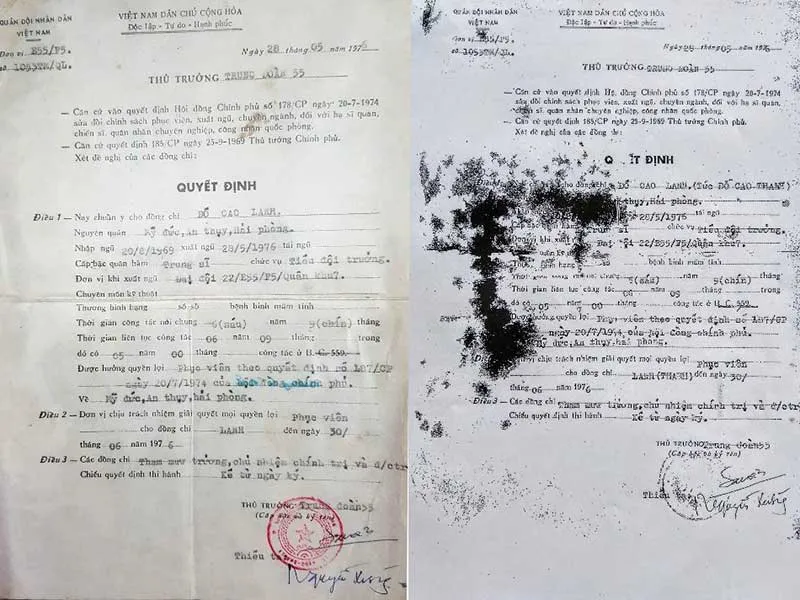 QUÂN ĐỘI NHÂN DÂN
VIỆT NAM
Đơn vị E55/F5.
số 1053TM/QL.
VIỆT NAM DÂN CHỦ CỘNG HÒA
Độc lập - Tự do - Hạnh phúc
Ngày 28 tháng 05 năm 1976
THỦ TRƯỞNG TRUNG ĐOÀN 55
— Căn cứ vào quyết định Hội đồng Chính phủ số 178/CP ngày 20-7-1974
sửa đổi chính sách phục viên, xuất ngũ, chuyển ngành, đối với hạ sĩ quan,
chiến sĩ, quân nhân chuyên nghiệp, công nhân quốc phòng.
— Căn cứ quyết định 185/CP ngày 25-9-1969 Thủ tướng Chính phủ.
Xét đề nghị của các đồng chí:
QUYẾT ĐỊNH
Điều 1 — Nay chuẩn y cho đồng chí ĐỖ CAO LANH.
Nguyên quán Kỳ đức,An thụy,Hải phòng.
Nhập ngũ 20/8/1969 xuất ngũ 28/5/1976 tái ngũ
Cấp bậc quân hàm Trung sĩ chức vụ Tiểu đội trưởng.
Đơn vị khi xuất ngũ Đại đội 22/E55/F5/Quân khu7.
Chuyên môn kỹ thuật
Thương binh hạng số sổ bệnh binh mãn tính
Thời gian công tác nói chung 6(sáu) năm 9(chín) tháng
Thời gian liên tục công tác 06 năm 09 tháng trong
đó có 05 năm 00 tháng công tác ở B.C.559.
Được hưởng quyền lợi Phục viên theo quyết định số 187/CP
ngày 20/7/1974 của hội đồng chính phủ.
Về Kỳ đức,An thụy,hải phòng.
Điều 2 — Đơn vị chịu trách nhiệm giải quyết mọi quyền lợi Phục viên
cho đồng chí LANH đến ngày 30/
tháng 06 năm 1976
Điều 3 — Các đồng chí Tham mưu trưởng,chủ nhiệm chính trị và đ/ctr
Chiếu quyết định thi hành Kể từ ngày ký.
THỦ TRƯỞNG Trung đoàn55
(Cấp bậc và ký tên)
Thiếu tá
Nguyễn Xuồng
QUÂN ĐỘI NHÂN DÂN
VIỆT NAM
Đơn vị E55/F5.
số 1053TM/QL.
VIỆT NAM DÂN CHỦ CỘNG HÒA
Độc lập - Tự do - Hạnh phúc
Ngày 28 tháng 05 năm 1976
THỦ TRƯỞNG TRUNG ĐOÀN 55
— Căn cứ vào quyết định Hội đồng Chính phủ số 178/CP ngày 20-7-1974
sửa đổi chính sách phục viên, xuất ngũ, chuyển ngành, đối với hạ sĩ quan,
chiến sĩ, quân nhân chuyên nghiệp, công nhân quốc phòng.
— Căn cứ quyết định 185/CP ngày 25-9-1969 Thủ tướng Chính phủ.
Xét đề nghị của các đồng chí:
QUYẾT ĐỊNH
cho đồng chí ĐỖ CAO LANH.(Tức ĐỖ CAO THANH)
thụy,Hải phòng.
28/5/1976 tái ngũ
chức vụ Tiểu đội trưởng.
Đại đội 22/E55/F5/Quân khu7.
bệnh binh mãn tính
6(sáu) năm 9(chín) tháng
Thời gian liên tục công tác 06 năm 09 tháng trong
đó có 05 năm 00 tháng công tác ở B.C.559.
Được hưởng quyền lợi Phục viên theo quyết định số 187/CP
ngày 20/7/1974 của hội đồng chính phủ.
Kỳ đức,An thụy,hải phòng.
chịu trách nhiệm giải quyết mọi quyền lợi Phục viên
LANH(THANH) đến ngày 30/
tháng 06 năm 1976
Điều 3 — Các đồng chí Tham mưu trưởng,chủ nhiệm chính trị và đ/ctr
Chiếu quyết định thi hành Kể từ ngày ký.
THỦ TRƯỞNG Trung đoàn55
(Cấp bậc và ký tên)
Thiếu tá
Nguyễn Xuồng